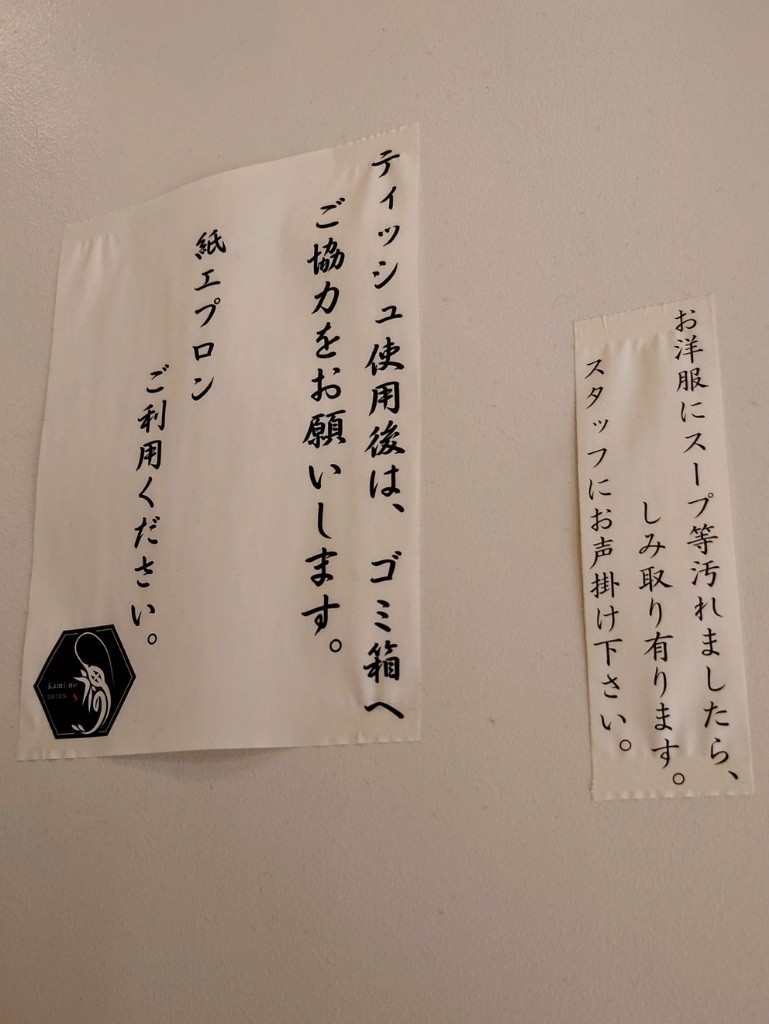 ティッシュ使用後は、ゴミ箱へ
ご協力をお願いします。
紙エプロン
ご利用ください。
Kami-no
お洋服にスープ等汚れましたら、
しみ取り有ります。
スタッフにお声掛け下さい。